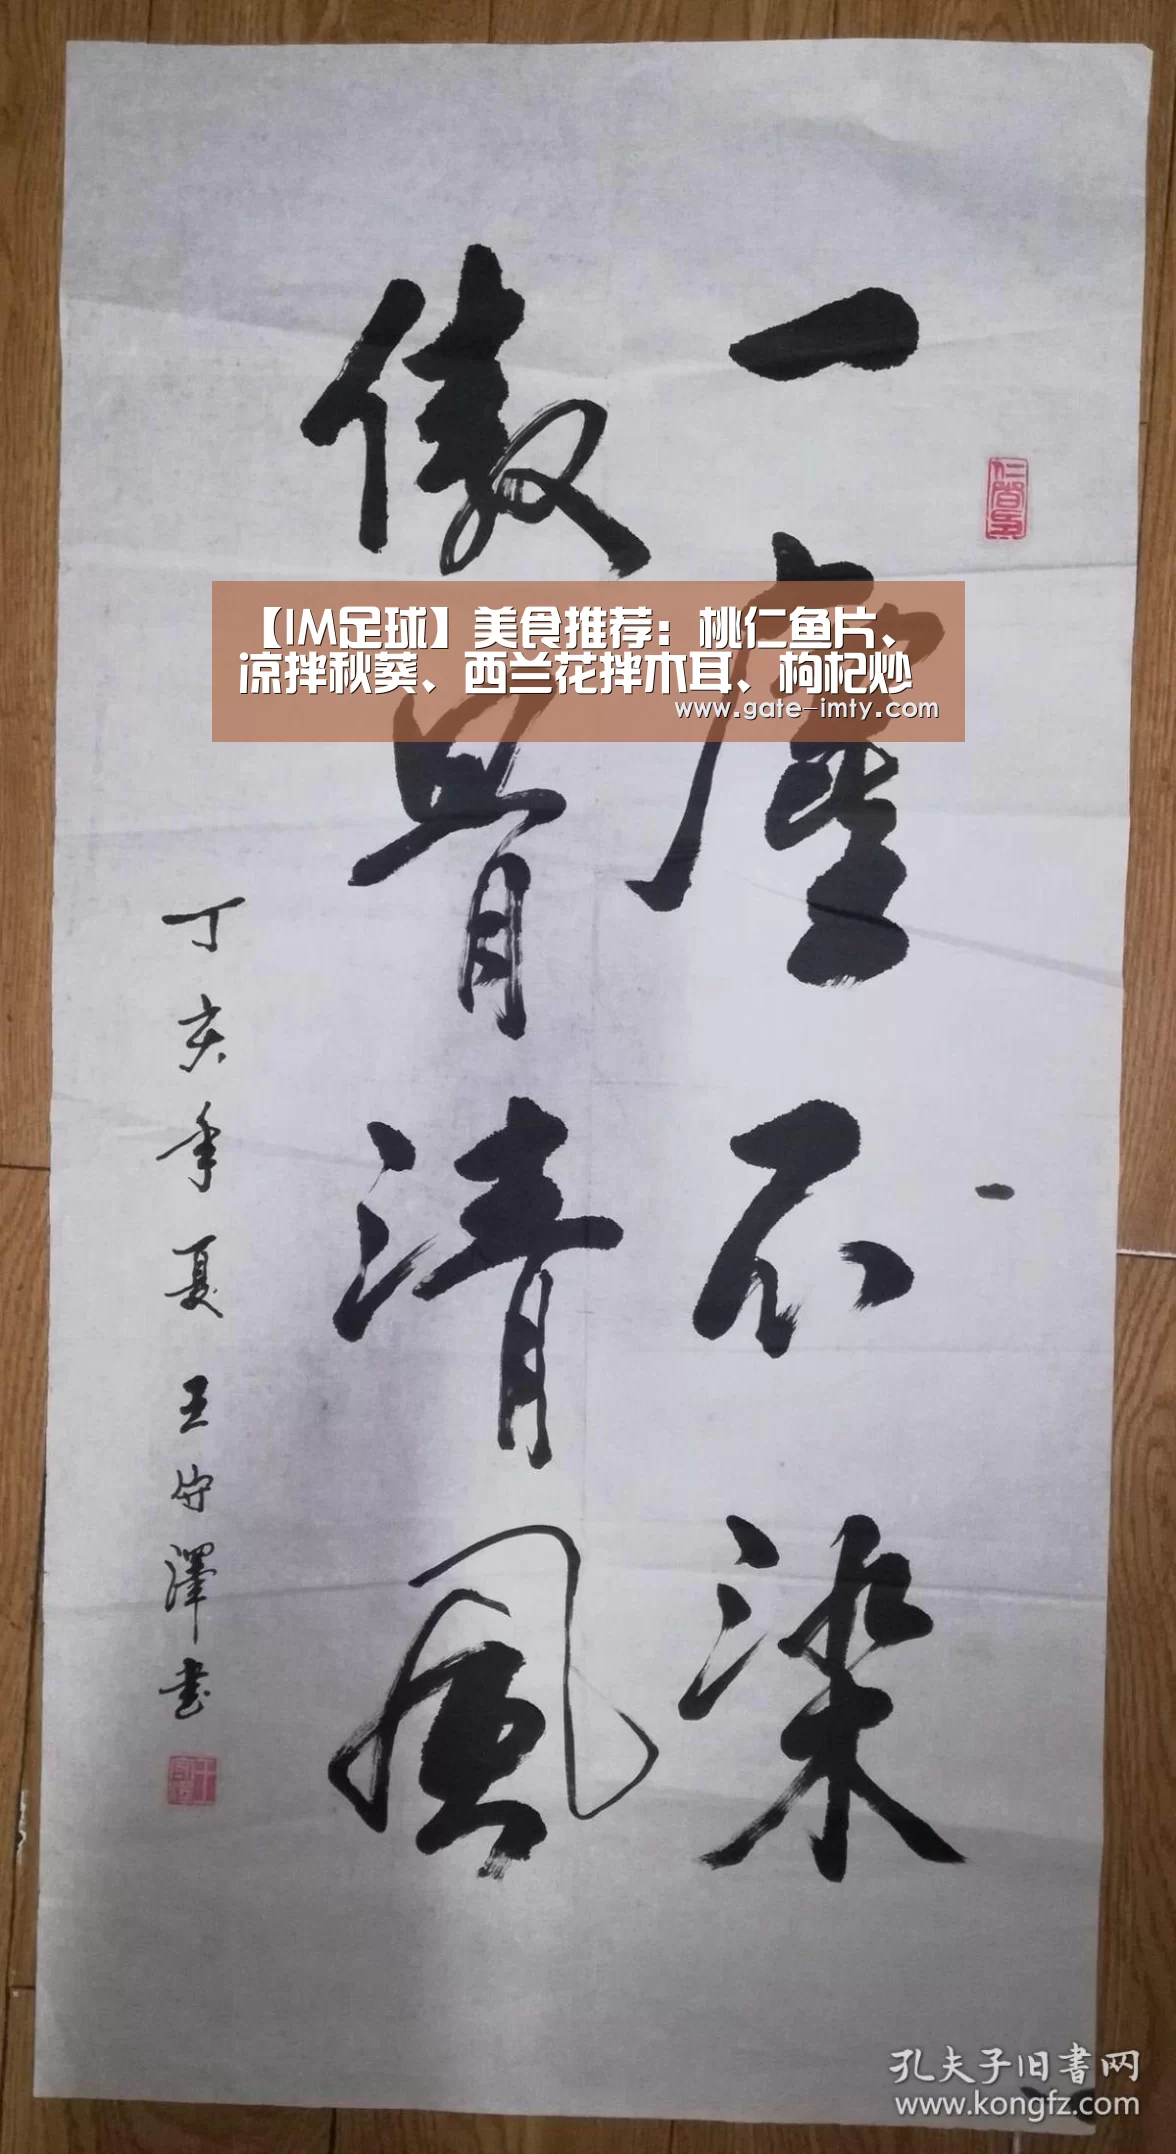 一塵不染
傲骨清风
丁亥年夏王守澤书
【IM足球】美食推荐：桃仁鱼片、
凉拌秋葵、西兰花拌木耳、枸杞炒
www.gate-imty.com
孔夫子旧书网
www.kongfz.com